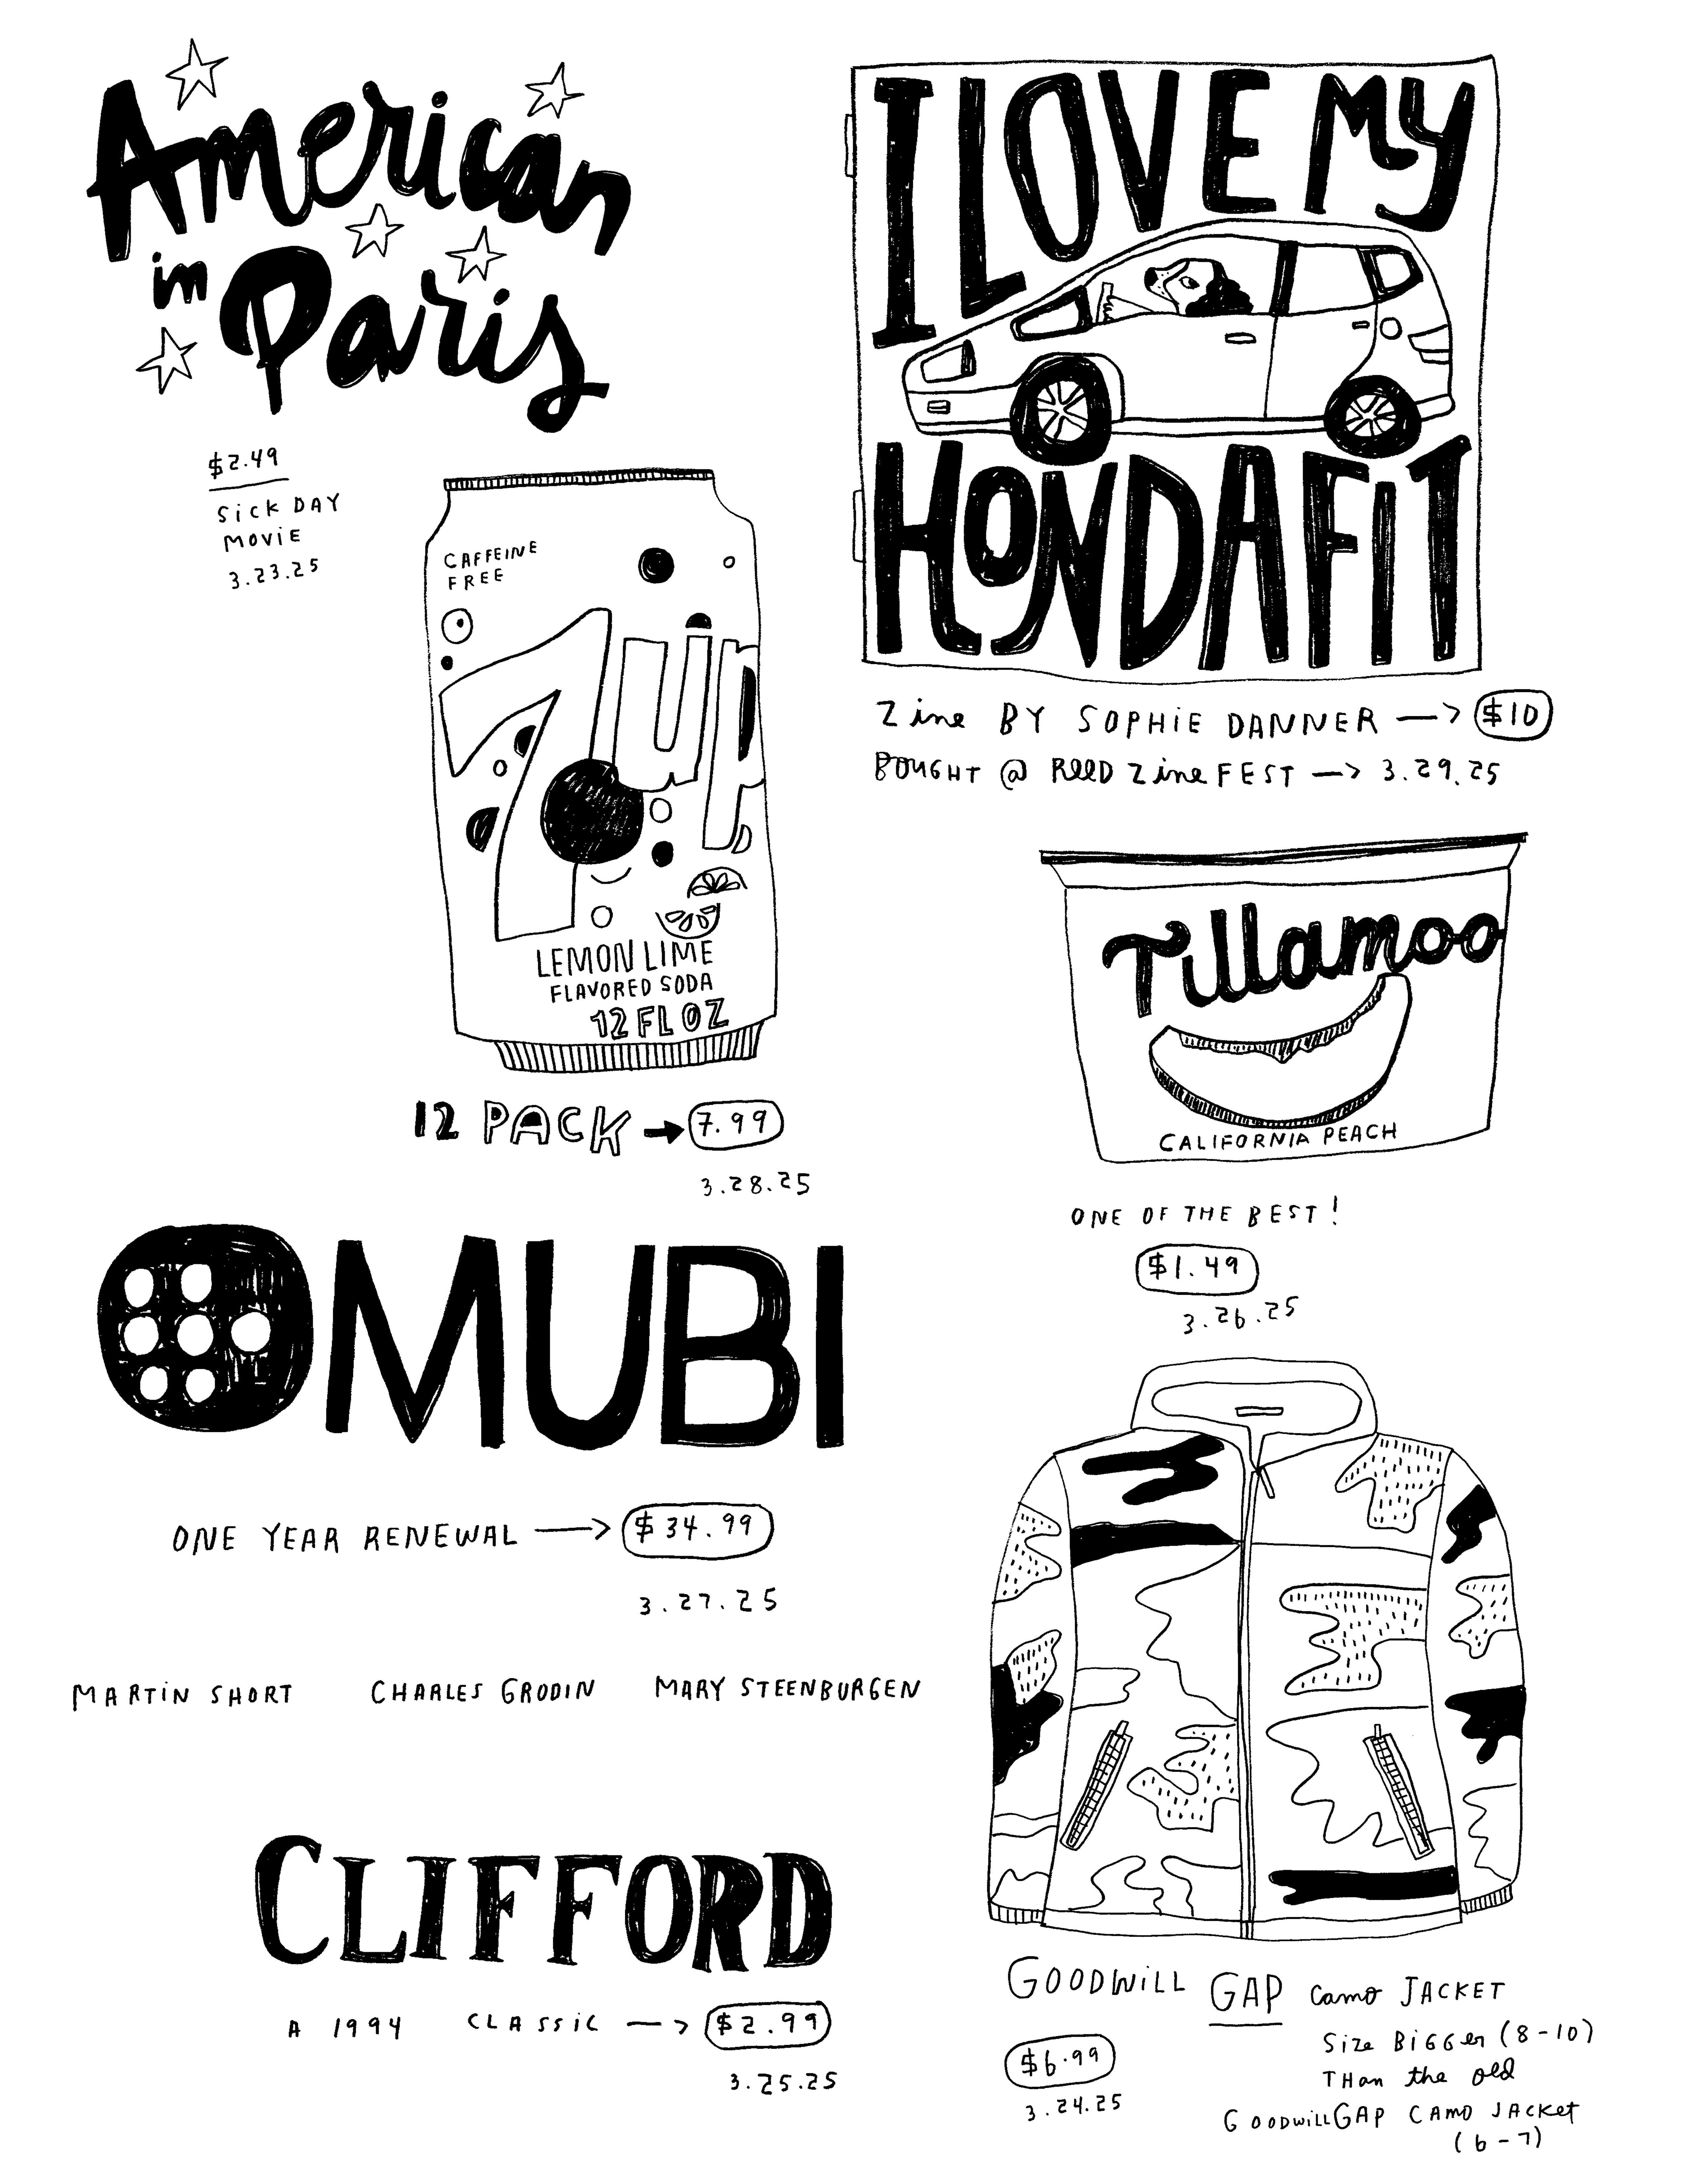 American
in
Paris
$2.49
SiCK DAY
MOViE
3.23.25
I LOVE MY
HONDA FIT
Zine BY SOPHiE DANNER → $10
BOUGHT @ REED Zine FEST → 3.29.25
CAFFEINE
FREE
7up
LEMON LIME
FLAVORED SODA
12 FL OZ
12 PACK → 7.99
3.28.25
Tillamoo
CALIFORNIA PEACH
ONE OF THE BEST!
$1.49
3.26.25
MUBI
ONE YEAR RENEWAL → $34.99
3.27.25
MARTiN SHORT CHARLES GRODIN MARY STEENBURGEN
CLIFFORD
A 1994 CLASSiC → $2.99
3.25.25
GOODWiLL GAP Camo JACKET
Size BiGGer (8-10)
THan the old
GOODWillGAP CAMO JACket
(6-7)
$6.99
3.24.25